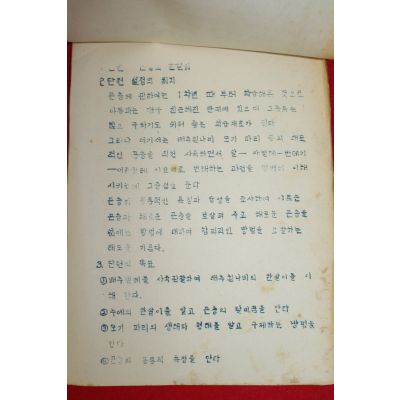 2. 단원 설정의 취지
곤충에 관하여는 1학년 때 부터 학습해온 것으로
아동과는 가장 친근해진 관계에 있으며 그 종류는
많고 구하기도 쉬워 좋은 학습재료가 된다.
그러나 여기서는 배추흰나비 모기 파리 등의 대표
적인 곤충을 직접 사육하면서 알—애벌레—번데기
—어른벌레 시기로 변태하는 과정을 명백히 이해
시키는데 그 중점을 둔다
곤충의 공통적인 특징과 습성을 조사하여 이로운
곤충과 해로운 곤충을 보살펴 주고 해로운 곤충을
없애는 방법에 대하여 합리적인 방법을
태도를 기른다.
3. 단원의 목표
①배추벌레를 사육관찰하여 배추흰나비의 한살이를 이
해 한다.
②누에의 한살이를 알고 곤충의 탈바꿈을 안다
③모기 파리의 생태와 피해를 알고 구제하는 방법을
안다
④곤충의 공통의 특징을 안다